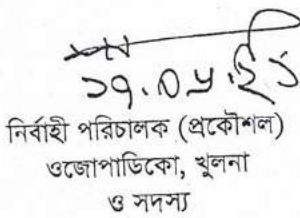 নির্বাহী পরিচালক (প্রকৌশল)
ওজোপাডিকো, খুলনা
ও সদস্য